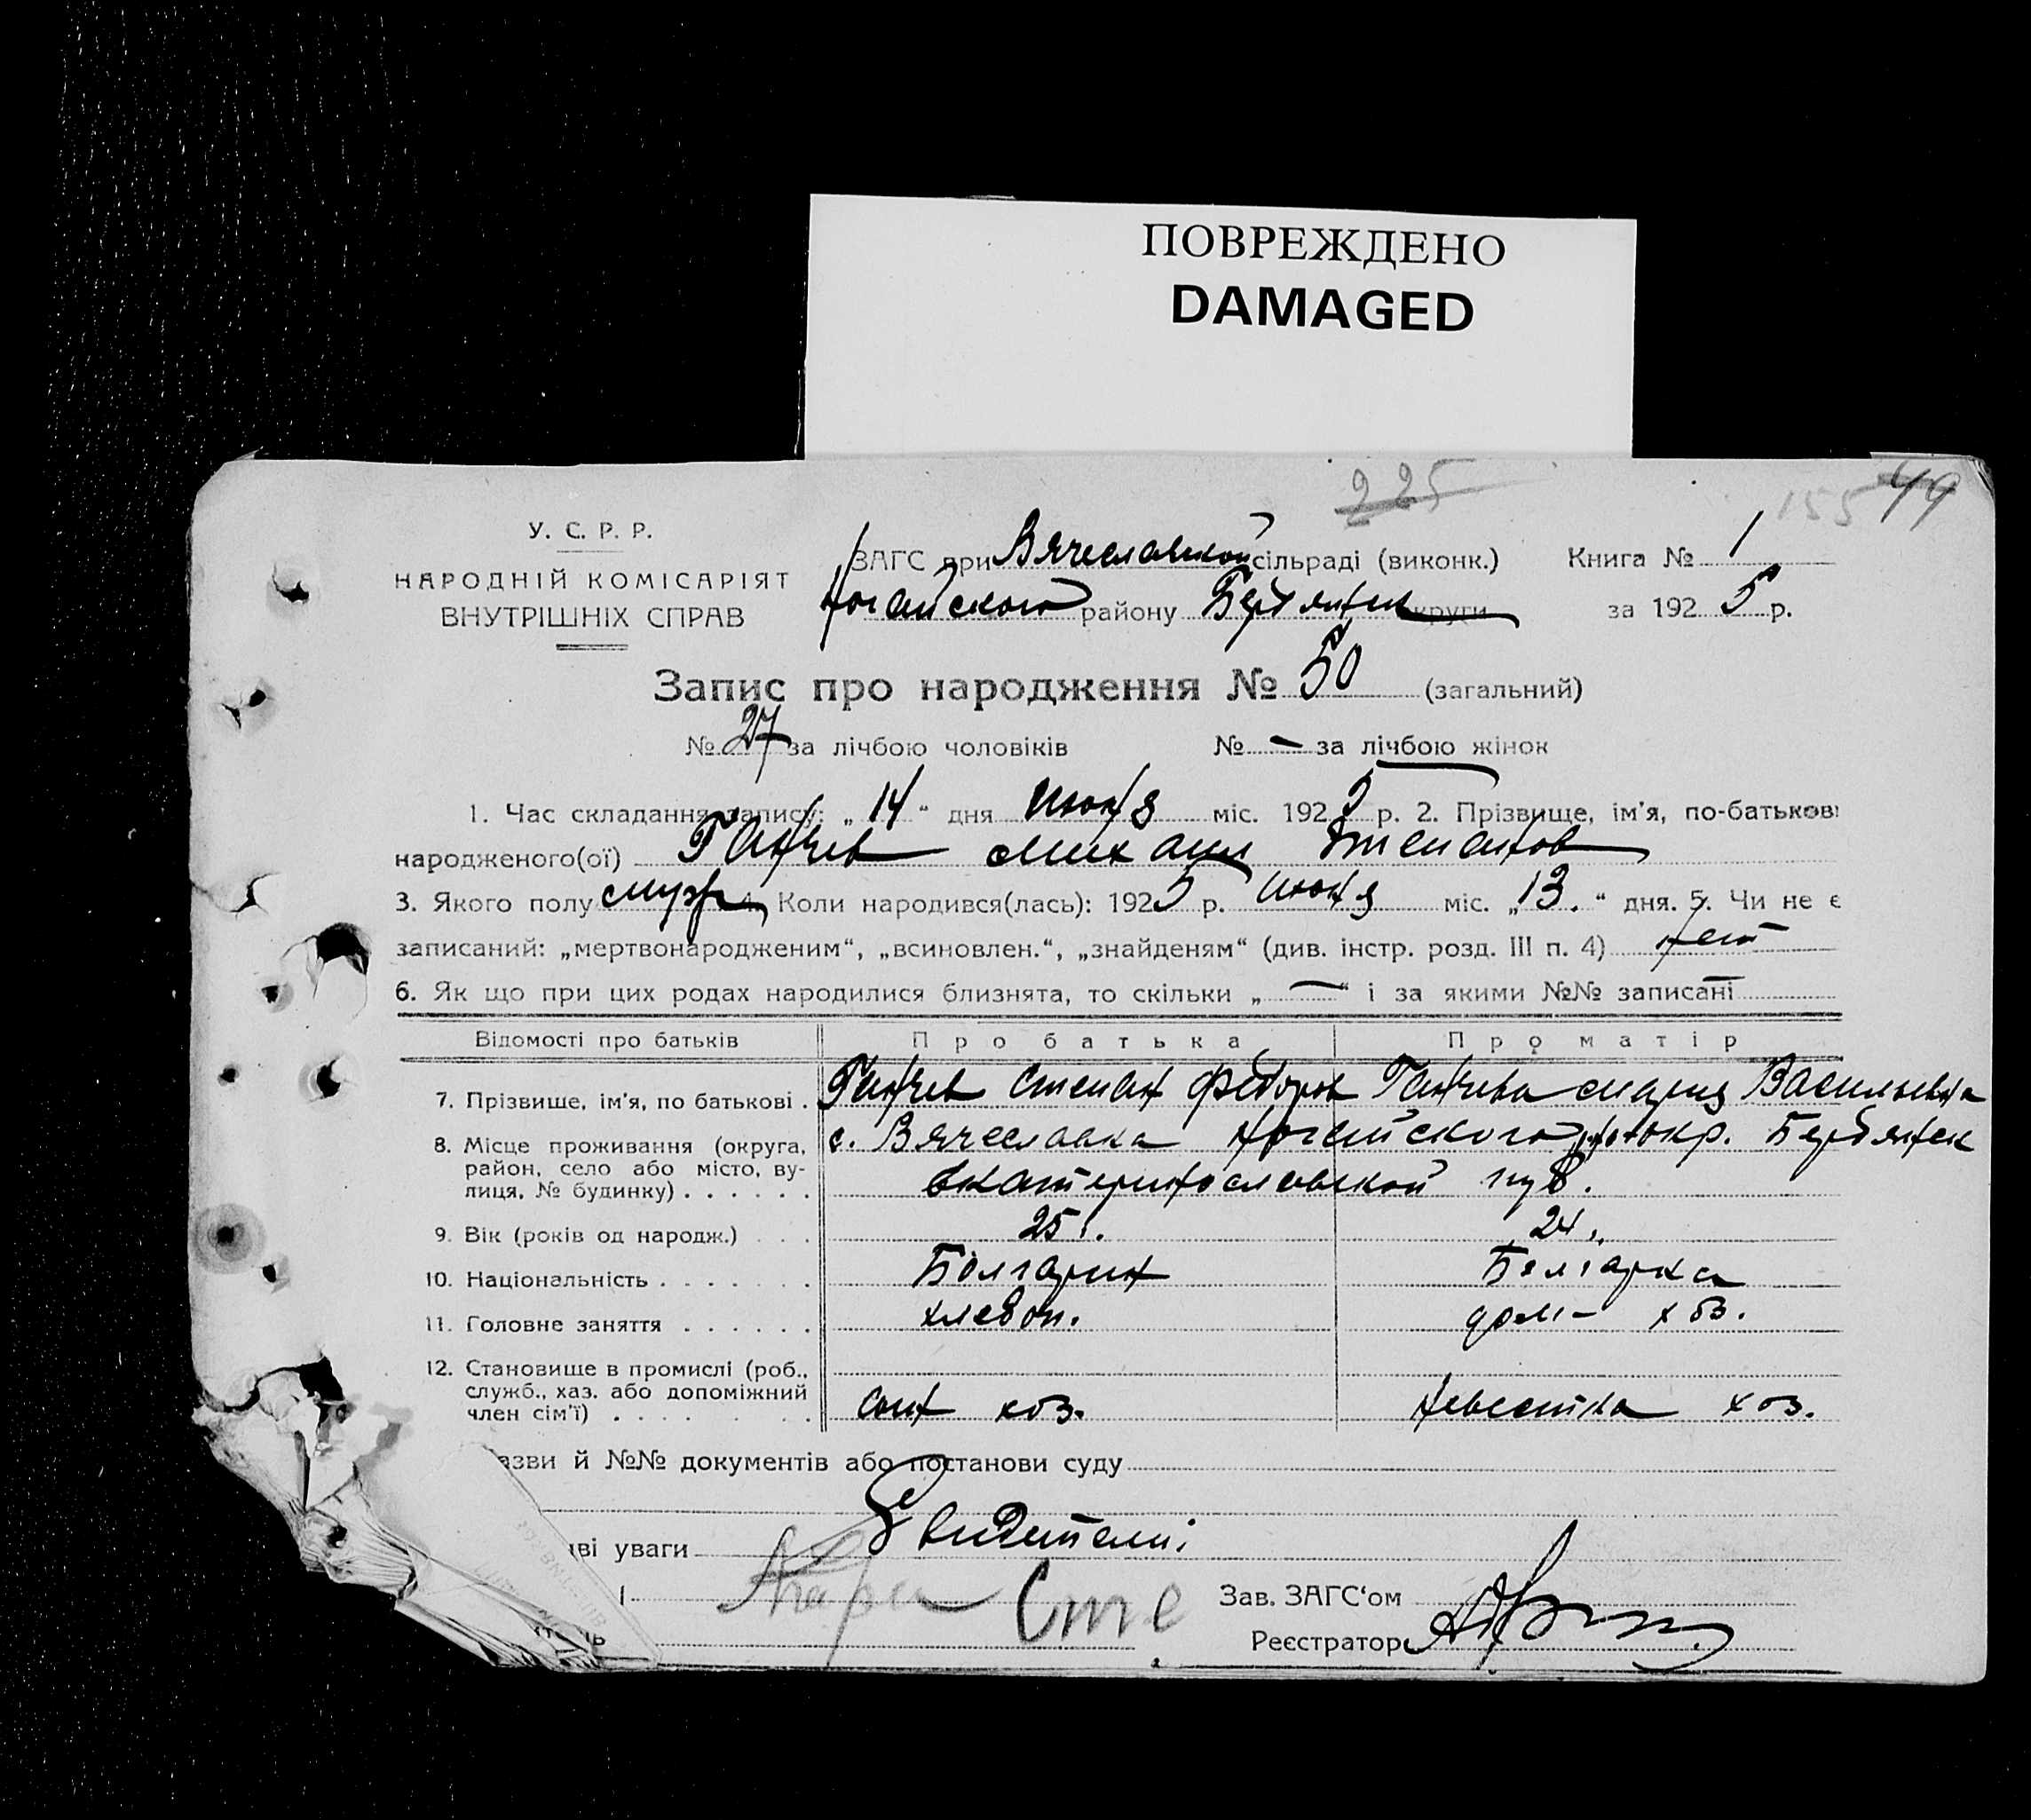 ПОВРЕЖДЕНО
DAMAGED
225
155 49
У. С. Р. Р.
НАРОДНІЙ КОМІСАРІЯТ
ВНУТРІШНІХ СПРАВ
ЗАГС при Вячеславской сільраді (виконк.) Книга № 1
Ногайского району Бердянск округи за 1925 р.
Запис про народження № 50 (загальний)
№ 27 за лічбою чоловіків № — за лічбою жінок
1. Час складання запису: „14“ дня июня міс. 1925 р. 2. Прізвище, ім'я, по-батькові
народженого(ої) Ганчев Михаил Степанов
3. Якого полу муж 4. Коли народився(лась): 1925 р. июня міс. „13.“ дня. 5. Чи не є
записаний: „мертвонародженим“, „всиновлен.“, „знайденям“ (див. інстр. розд. III п. 4) нет
6. Як що при цих родах народилися близнята, то скільки „—“ і за якими №№ записані —
Відомості про батьків Про батька Про матір
7. Прізвише, ім'я, по батькові . Ганчев Степан Федоров Ганчева Мария Васильевна
8. Місце проживання (округа, район, село або місто, вулиця, № будинку) . . . . . . с. Вячеславка Ногайского окр. Бердянск
Екатеринославской губ.
9. Вік (років од народж.) . . . 25 г. 24 г.
10. Національність . . . . . . . Болгарин Болгарка
11. Головне заняття . . . . . . хлебоп. дом- хоз.
12. Становище в промислі (роб., служб., хаз. або допоміжний член сім'ї) . . . . . сын хоз. невестка хоз.
азви й №№ документів або постанови суду
Свидетели:
иві уваги
Сте
Зав. ЗАГС'ом
Реєстратор